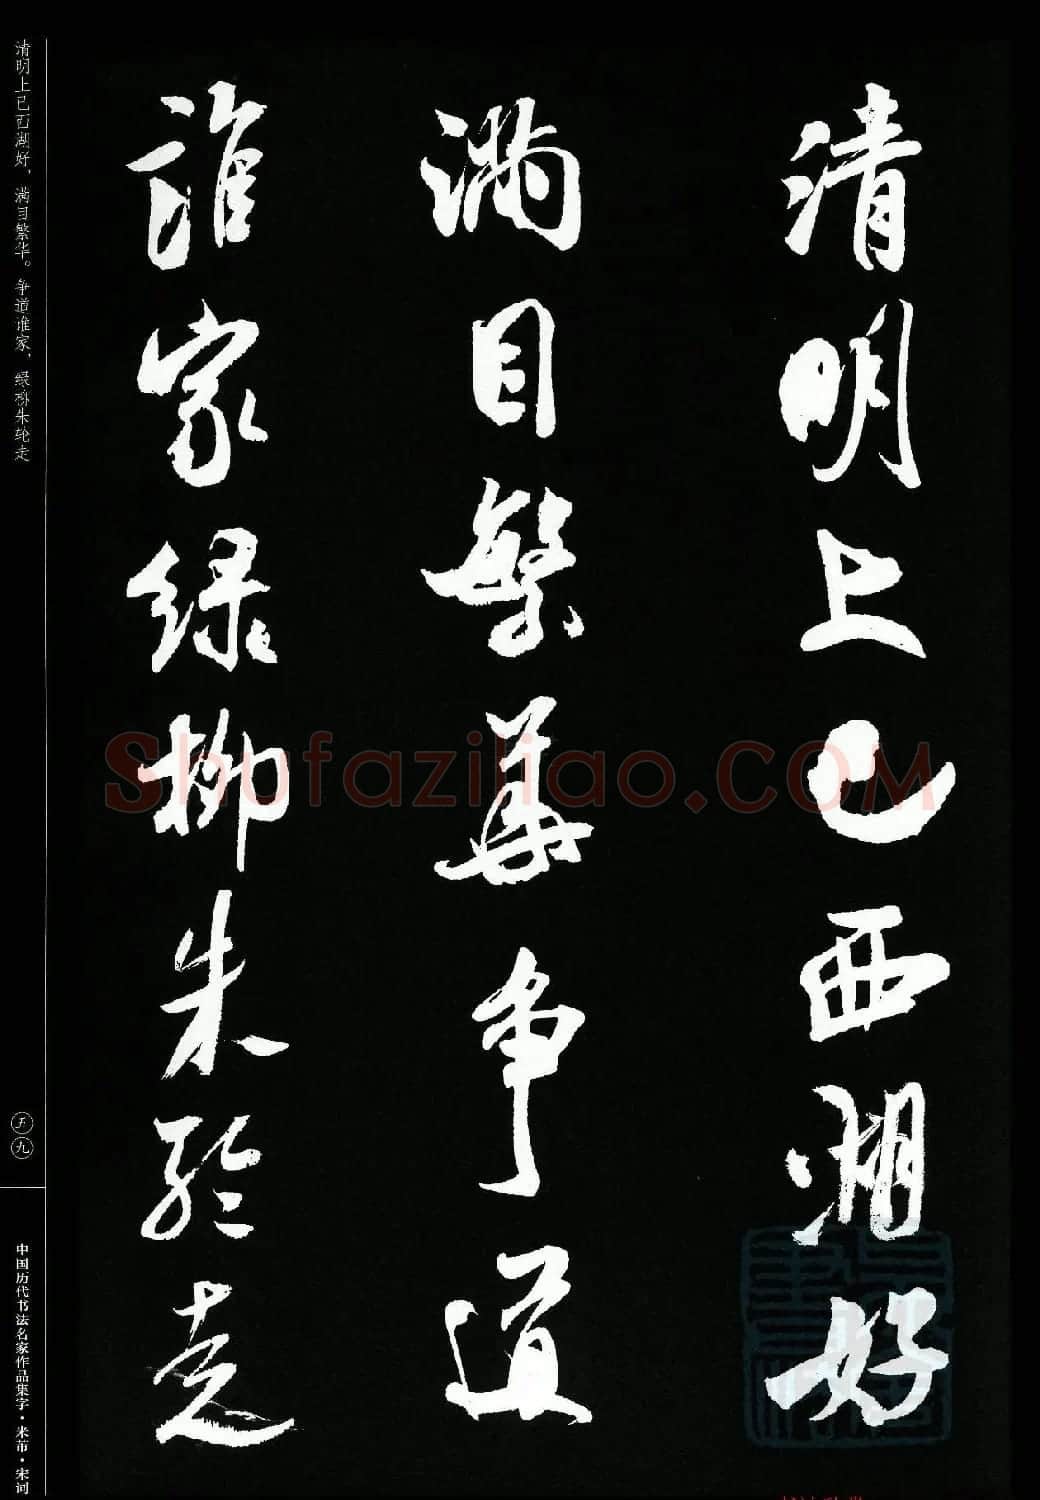 清明上巳西湖好
滿目繁華争道
誰家綠柳朱輪走
清明上巳西湖好，满目繁华。争道谁家，绿柳朱轮走
五九
中国历代书法名家作品集字·米芾·宋词
Shufaziliao.COM